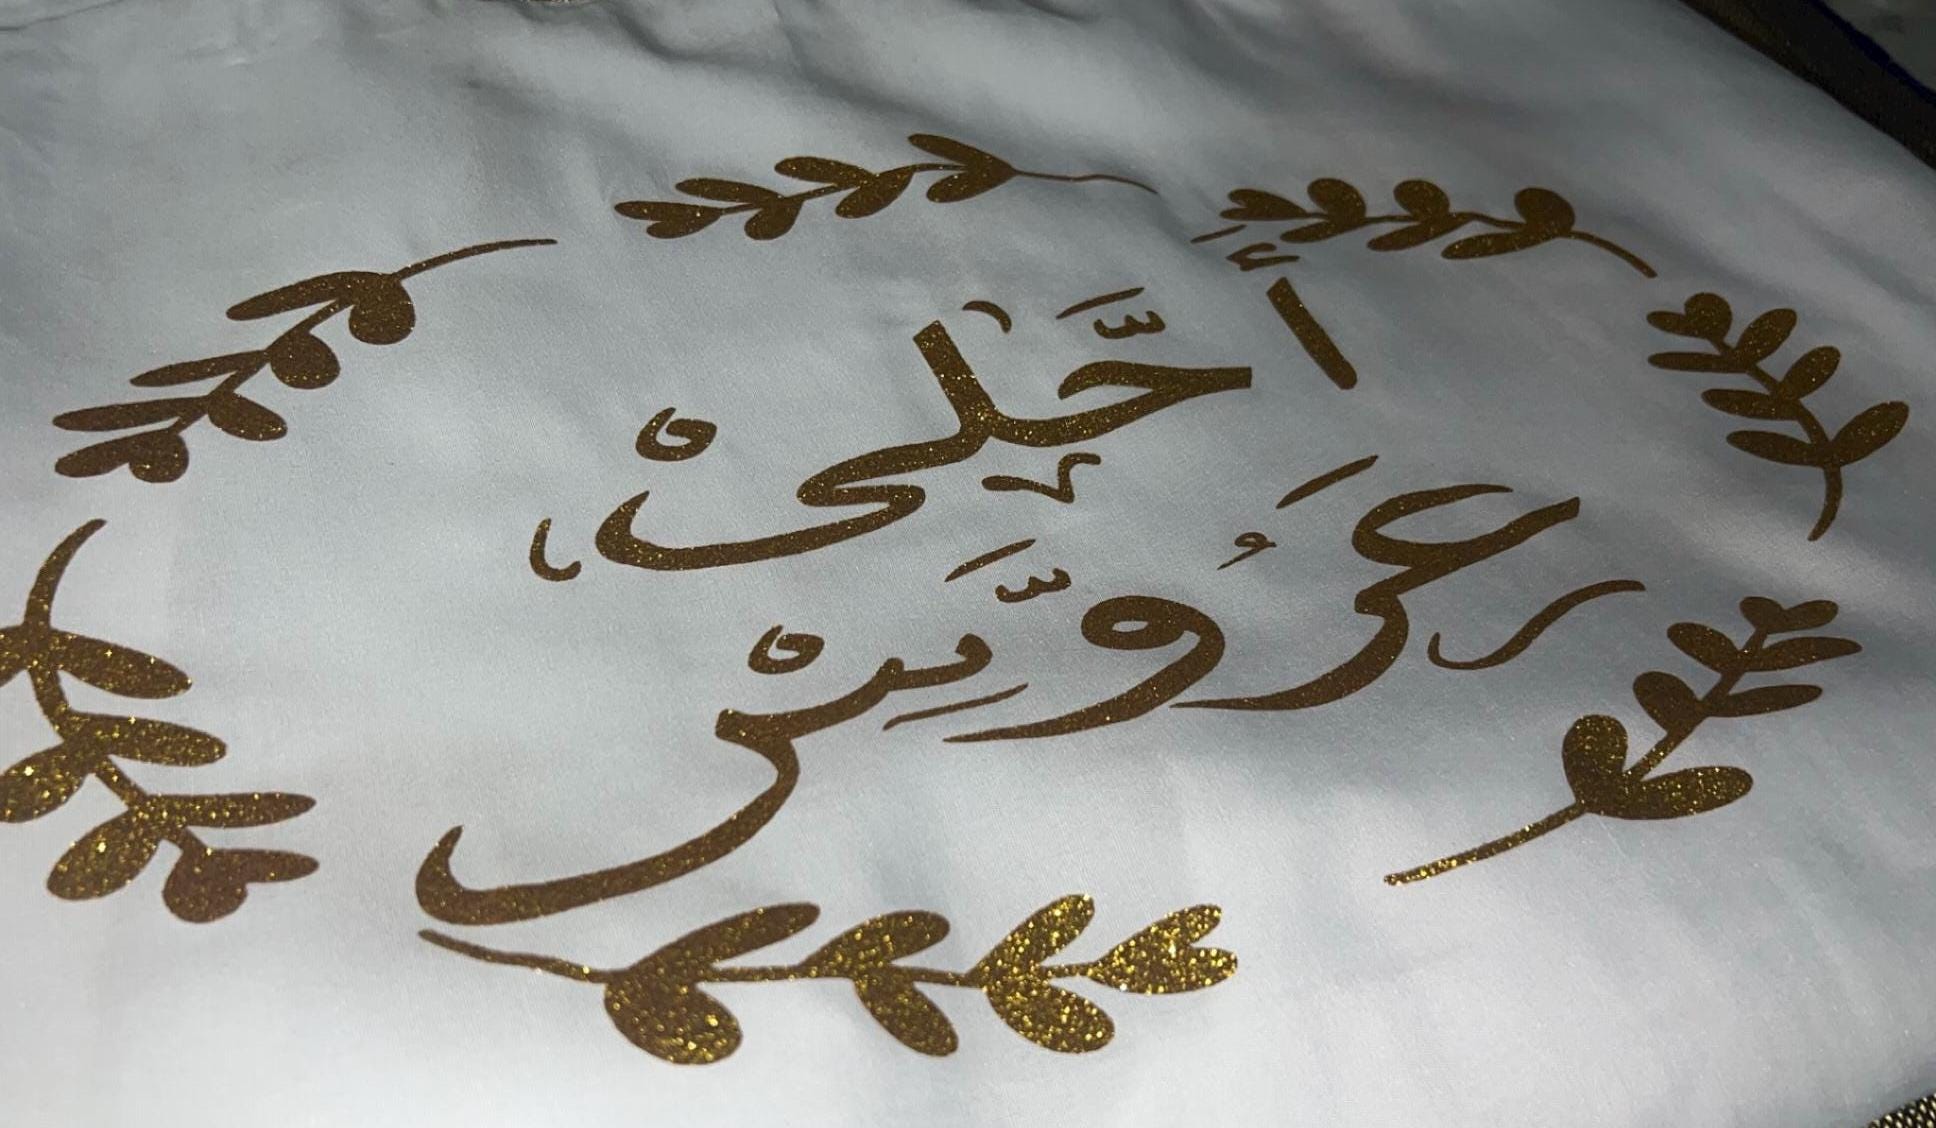 أحلى
عروس